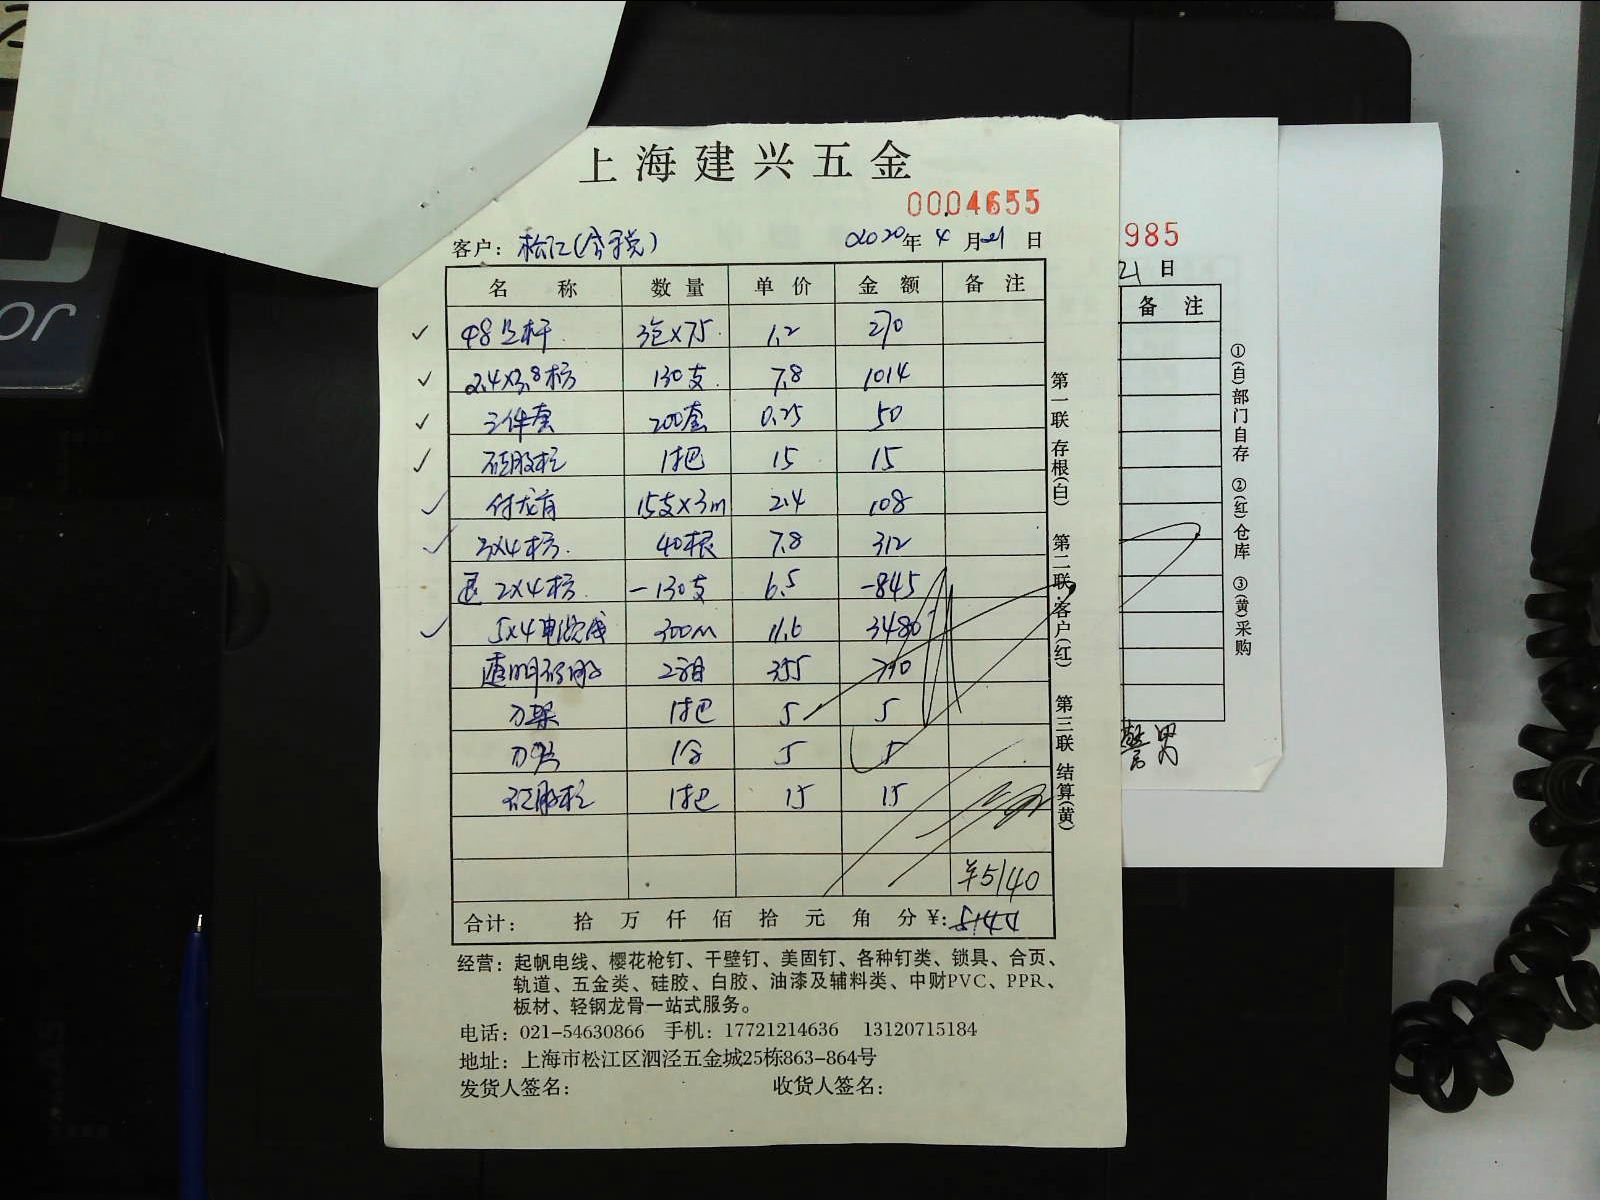 上海建兴五金
0004655
客户: 松江(含税) 2020年 4 月 21 日
名 称 数 量 单 价 金 额 备 注
φ8丝杆 3包×75 1.2 270
2.4×3.8 130支 7.8 1014
三件套 200套 0.25 50
硅胶枪 1把 15 15
付龙骨 15支×3m 2.4 108
3×4 40根 7.8 312
退 2×4 -130支 6.5 -845
5×4电缆线 300m 11.6 3480
透明硅胶 2箱 355 710
刀架 1把 5 5
刀片 1盒 5 5
硅胶枪 1把 15 15
¥5140
合计: 拾 万 仟 佰 拾 元 角 分 ¥:
经营: 起帆电线、樱花枪钉、干壁钉、美固钉、各种钉类、锁具、合页、
轨道、五金类、硅胶、白胶、油漆及辅料类、中财PVC、PPR、
板材、轻钢龙骨一站式服务。
电话: 021-54630866 手机: 17721214636 13120715184
地址: 上海市松江区泗泾五金城25栋863-864号
发货人签名: 收货人签名:
第一联 存根(白) 第二联 客户(红) 第三联 结算(黄)
985
21 日
备 注
①(白)部门自存 ②(红)仓库 ③(黄)采购
JO